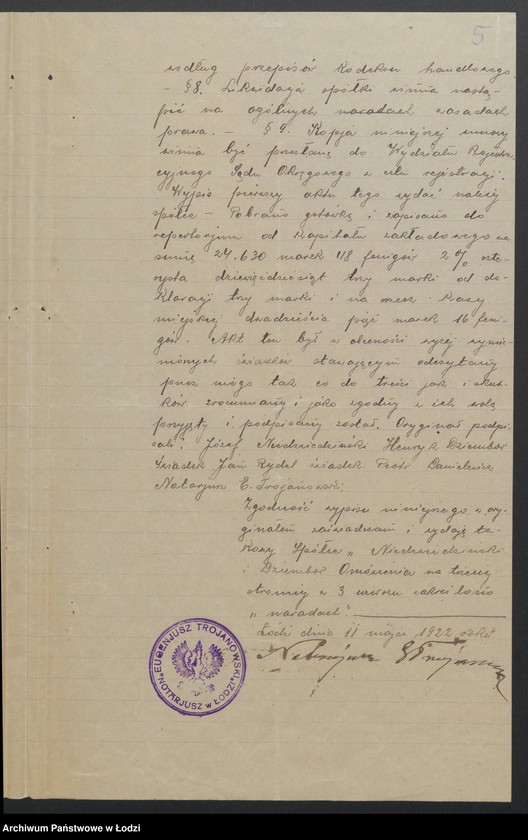 5
według przepisów Kodeksu handlowego.
– § 8. Likwidacja spółki winna nastą-
pić na ogólnych naradach zasadach
prawa. – § 9. Kopja niniejszej umowy
winna być przesłaną do Wydziału Rejestra-
cyjnego Sądu Okręgowego w celu rejestracji.
Wypis pierwszy aktu tego wydać należy
spółce – Pobrano gotówką i zapisano do
repertorjum od kapitału zakładowego na
sumę 24.630 marek 48 fenigów 2 %
dziewięćdziesiąt trzy marki od de-
klaracji trzy marki i na rzecz kasy
miejskiej dwadzieścia pięć marek 16 feni-
gów. Akt ten był w obecności wyżej wymie-
nionych świadków stawającym odczytany
przez mógo tak co do treści jak i skut-
ków zrozumiany i jako zgodny z ich wolą
przyjęty i podpisany został. Oryginał podpi-
sali: Józef Niedzwiedziński Henryk Dziembor
świadek Jan Rydel świadek Piotr Danielewicz
Notarjusz E. Trojanowski.
Zgodność wypisu niniejszego z ory-
ginałem zaświadczam i wydaję ta-
kowy Spółce „Niedzwiedzinski
i Dziembor Omówienia na trzeciej
stronicy w 3 wierszu zakreślono
„naradach".
Łódź dnia 11 maja 1922 roku
Notarjusz ETrojanowski
EUGENJUSZ TROJANOWSKI
NOTARJUSZ w ŁODZI
Archiwum Państwowe w Łodzi